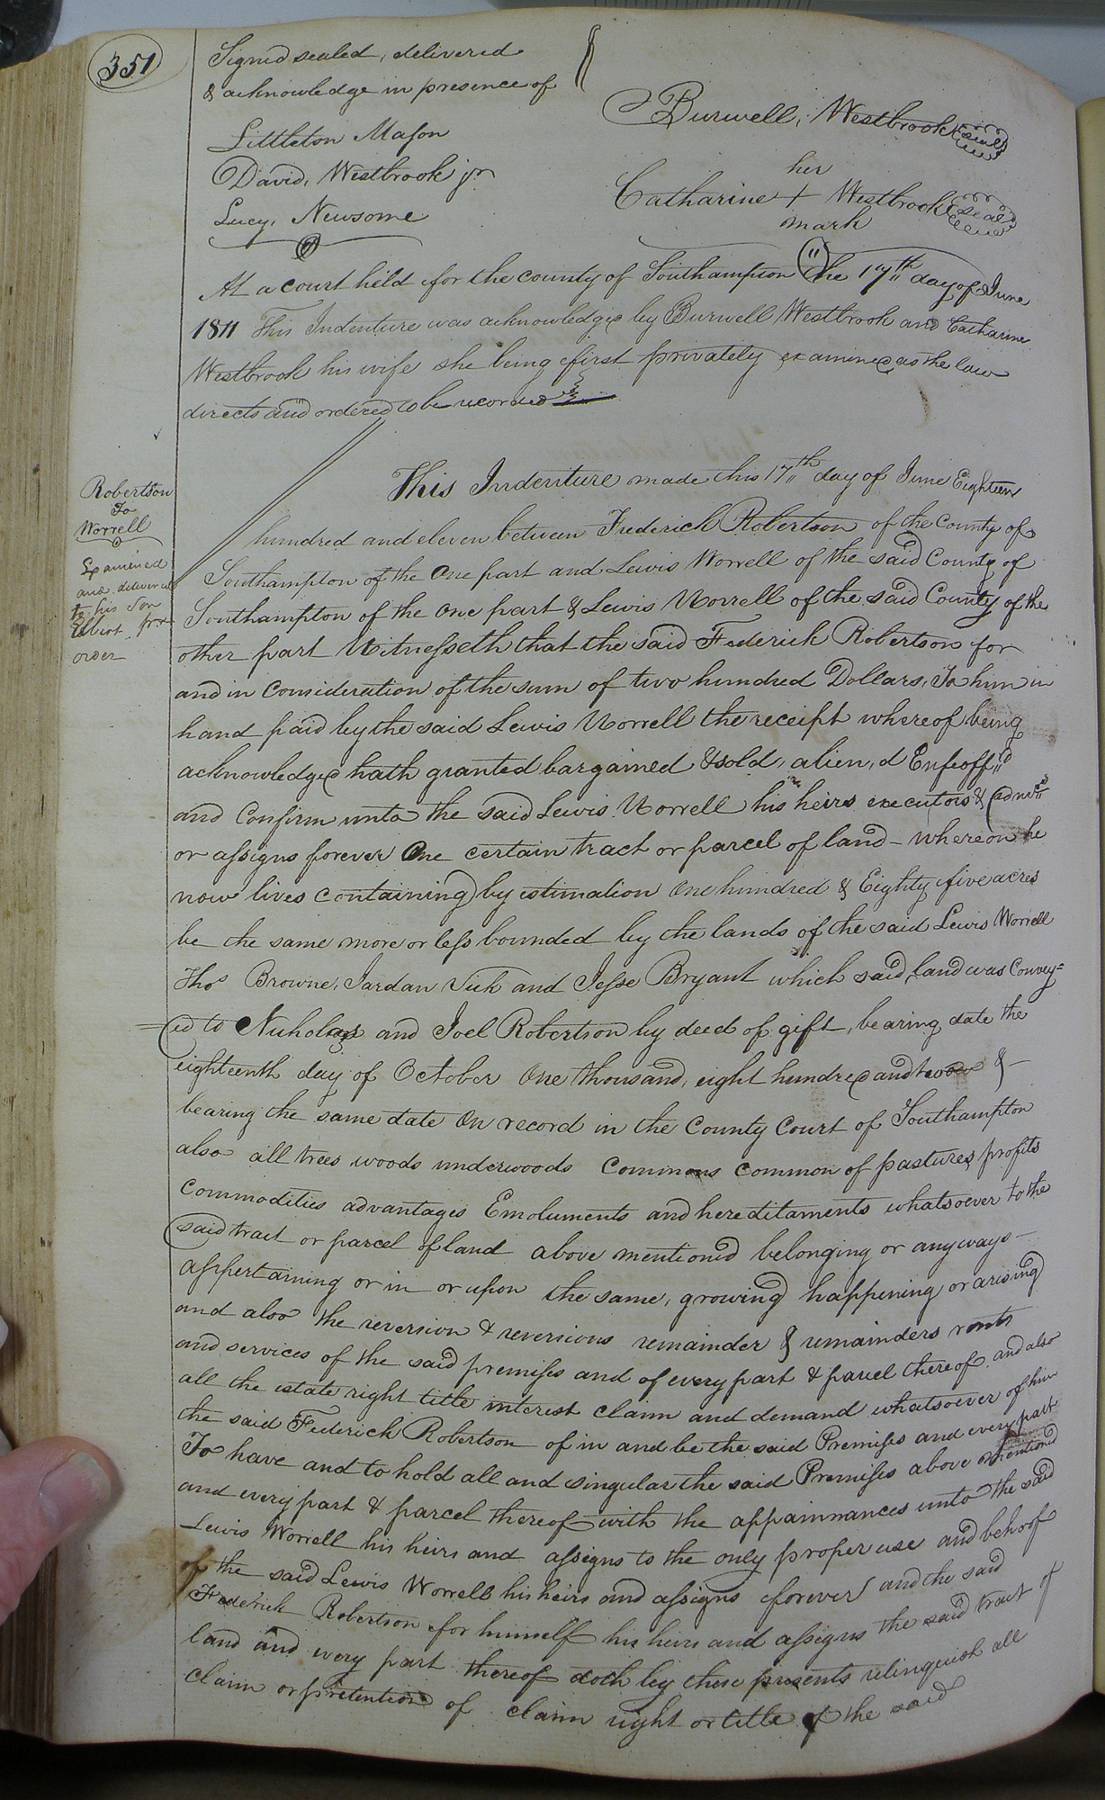 351
Signed sealed, delivered
& acknowledge in presence of
Littleton Mason
David, Westbrook jr
Lucy, Newsome
Burwell, Westbrook seal
her
Catharine + Westbrook seal
mark
At a court held for the county of Southampton the 17th day of June
1811 This Indenture was acknowledged by Burwell Westbrook and Catharine
Westbrook his wife she being first privately examined as the law
directs and ordered to be recorded
Robertson
To
Worrell
Examined
and delivered
to his Son
Elbert pr
order
This Indenture made this 17th day of June Eighteen
hundred and eleven between Frederick Robertson of the County of
Southampton of the One part and Lewis Worrell of the said County of
Southampton of the One part & Lewis Worrell of the said County of the
other part Witnesseth that the said Frederick Robertson for
and in Consideration of the sum of two hundred Dollars, To him in
hand paid by the said Lewis Worrell the receipt whereof being
acknowledged hath granted bargained & sold, alien,d Enfeoff,,d
and Confirm unto the said Lewis Worrell his heirs executors & admrs
or assigns forever One certain tract or parcel of land - whereon he
now lives containing by estimation One hundred & Eighty five acres
be the same more or less bounded by the lands of the said Lewis Worrell
Thos Browne, Jordan Vick and Jesse Bryant which said, land was Convey=
=ed to Nicholas and Joel Robertson by deed of gift, bearing date the
eighteenth day of October One thousand, eight hundred and two &-
bearing the same date On record in the County Court of Southampton
also all trees woods underwoods Commons common of pastures profits
Commodities advantages Emoluments and hereditaments whatsoever to the
said tract or parcel of land above mentioned belonging or anyways-
appertaining or in or upon the same, growing happening or arising
and also the reversion & reversions remainder & remainders rents
and services of the said premises and of every part & parcel thereof and also
all the estate right title interest claim and demand whatsoever of him
the said Frederick Robertson of in and be the said Premises and every part
To have and to hold all and singular the said Premises above mentioned
and every part & parcel thereof with the appainnances unto the said
Lewis Worrell his heirs and assigns to the only proper use and behoof
of the said Lewis Worrell his heirs and assigns forever and the said
Frederick Robertson for himself his heirs and assigns the said tract of
land and every part thereof doth by these presents relinquish all
claim or pretention of claim right or title of the said